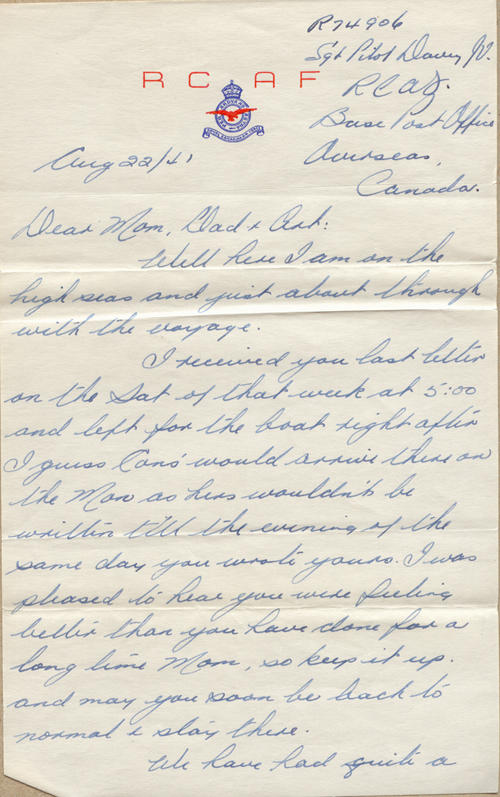 R74906
Sgt Pilot Davey JV.
R C A F
R.C.A.F.
Base Post Office
Overseas,
Aug 22/41
Canada.
Dear Mom, Dad & Art:
Well here I am on the
high seas and just about through
with the voyage.
I received you last letter
on the Sat of that week at 5:00
and left for the boat right after
I guess would arrive there on
the Mon as hers wouldn't be
written till the evening of the
same day you wrote yours. I was
pleased to hear you were feeling
better than you have done for a
long time Mom, so keep it up.
and may you soon be back to
normal & stay there.
We have had quite a